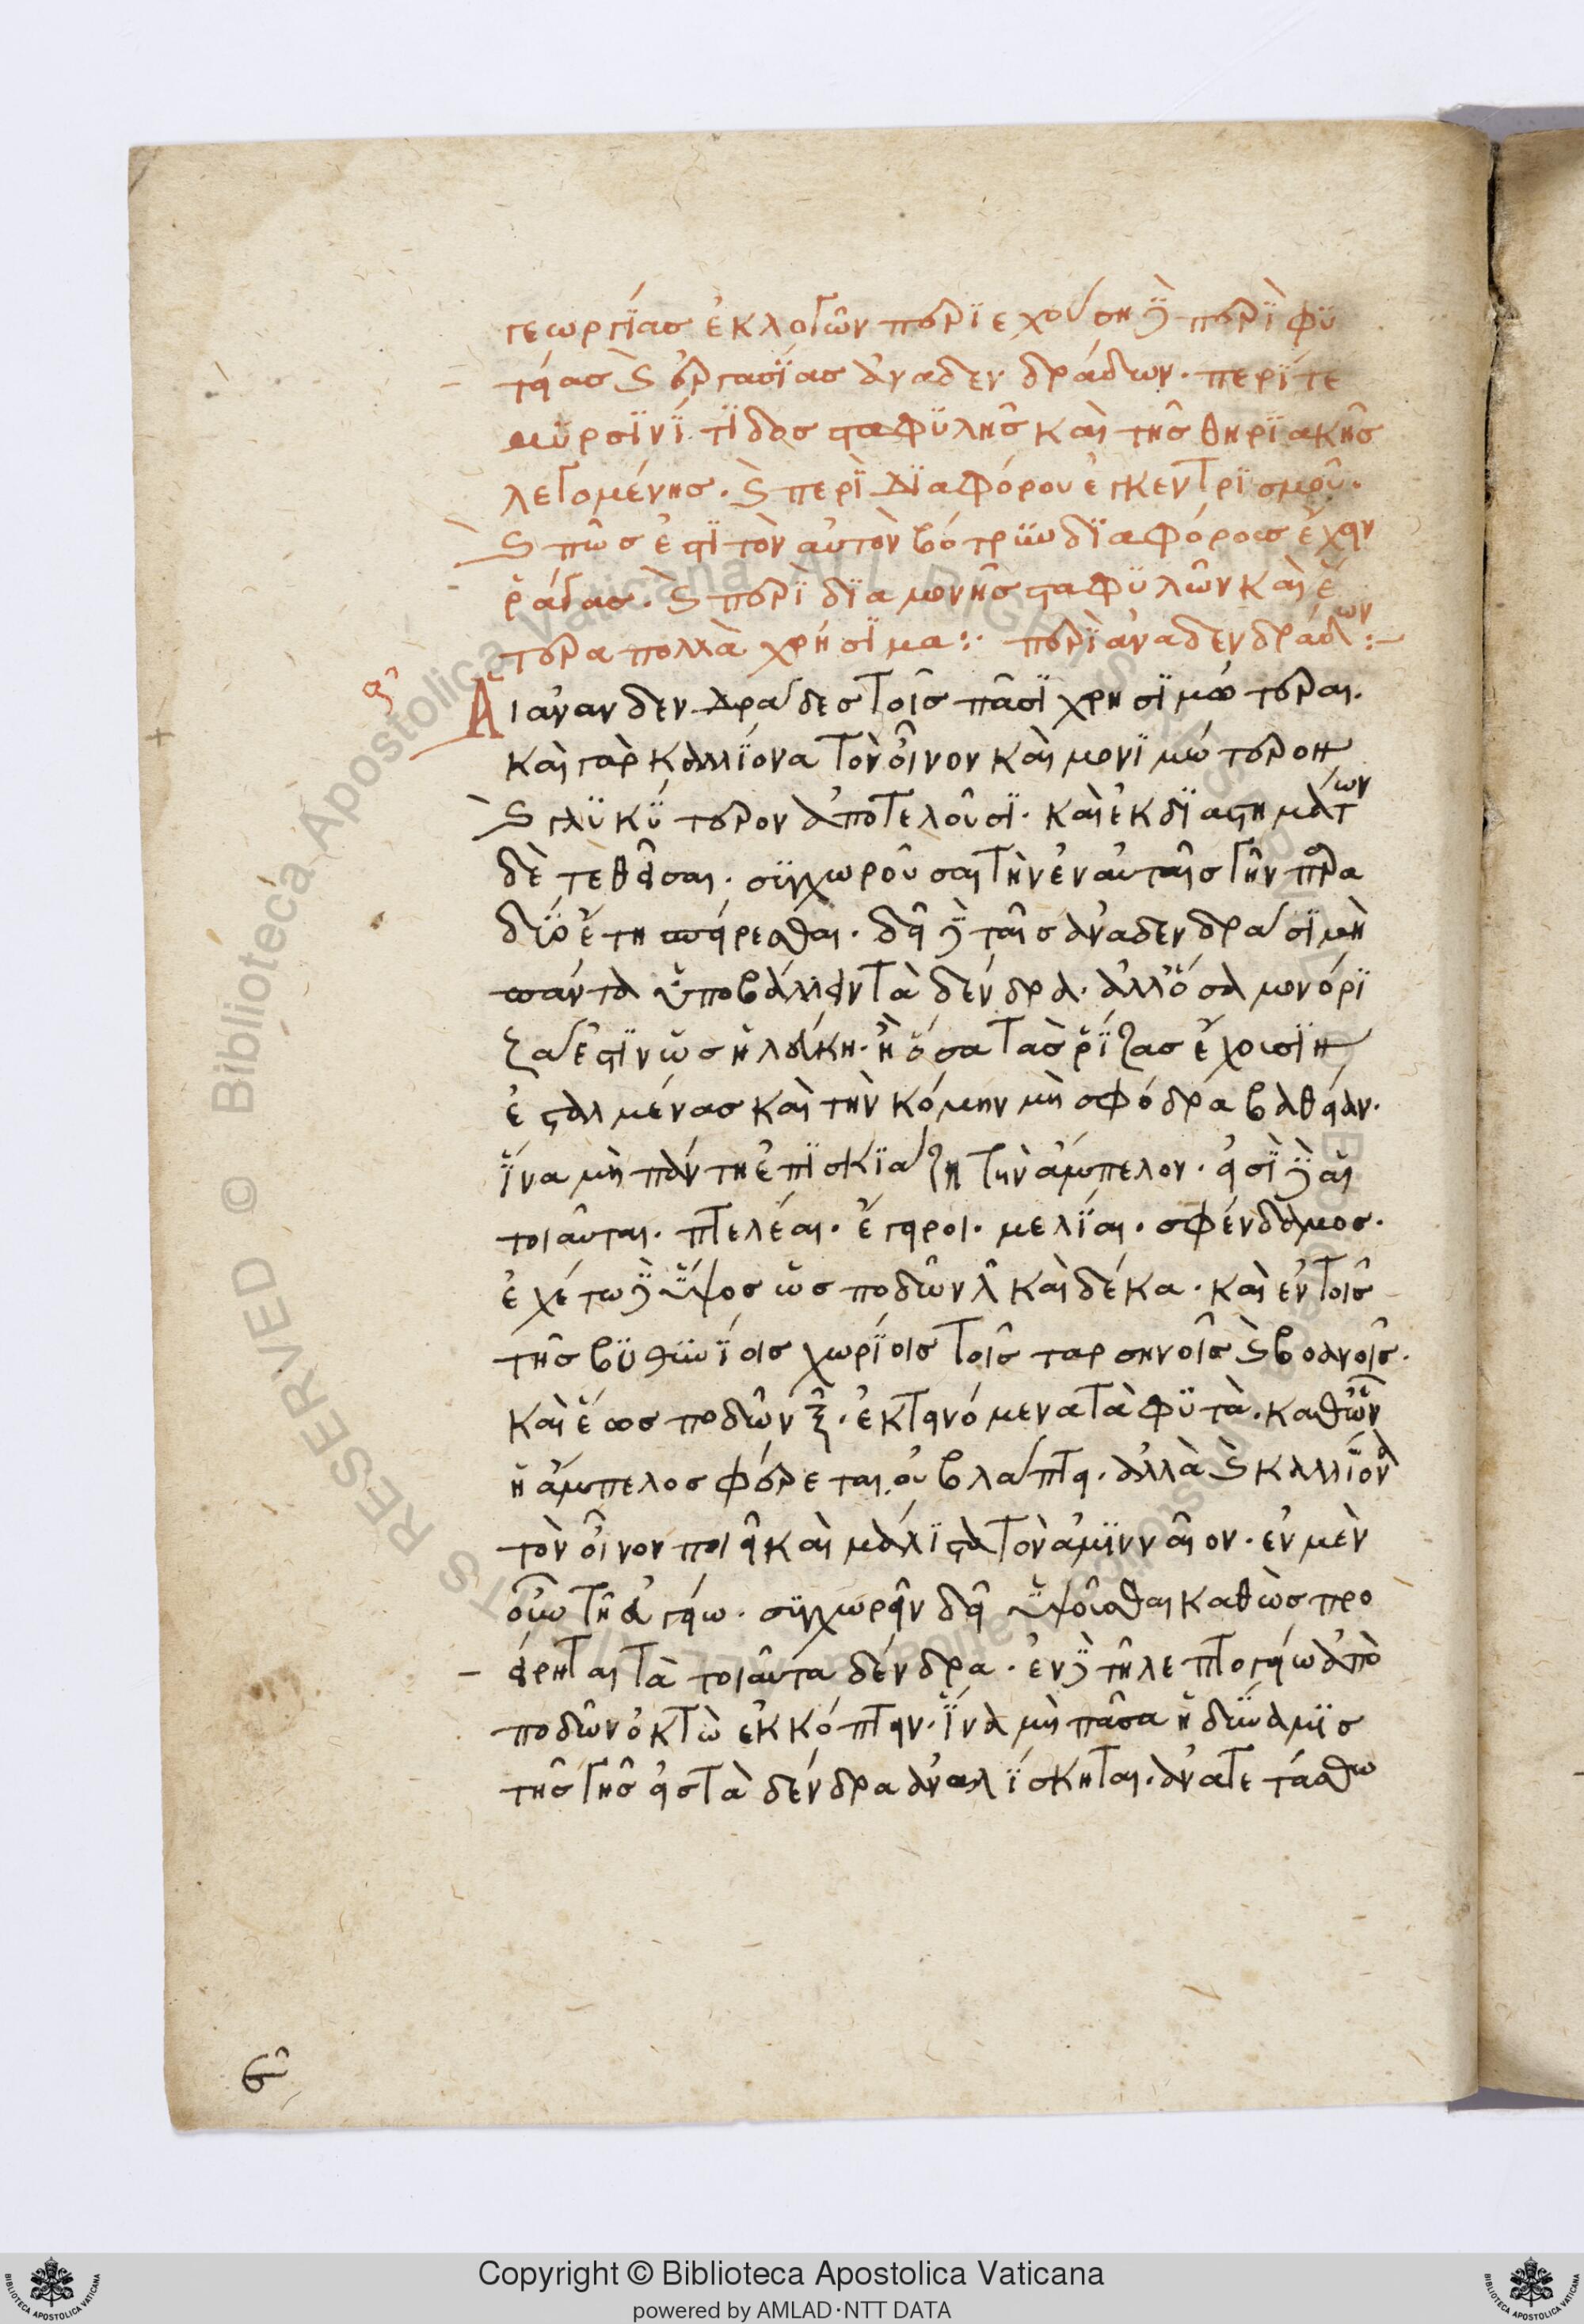 γεωργίας ἐκλογῶν περϊεχούση δὲ περὶ φϋ
τείας καὶ ἐργασίας ἀναδενδράδων. περί τε
μϋρσϊνίτϊδος σταφϋλῆς καὶ τῆς θηρϊακῆς
λεγομένης. καὶ περὶ δϊαφόρου ἐγκεντρϊσμοῦ.
καὶ πῶς ἐστϊ τὸν αὐτὸν βότρϋν δϊαφόρους ἔχειν
ῥάγας. καὶ περὶ δϊαμονῆς σταφϋλῶν καὶ ἕ
τερα πολλὰ χρήσϊμα:· περὶ ἀναδενδράδων:–
α΄
Αἱ ἀνανδενδράδες τοῖς πᾶσϊ χρησϊμώτεραι.
καὶ γὰρ καλλίονα τὸν οἶνον καὶ μονϊμώτερον
καὶ γλϋκΰτερον ἀποτελοῦσϊ. καὶ ἐκ δϊαστημάτων
δὲ τεθεῖσαι. συγχωροῦσαι τὴν ἐν αὐταῖς γῆν παρα
δϊο ἔτη σπείρεσθαι. δεῖ δὲ ταῖς ἀναδενδράσϊ μὴ
πάντα ὑποβάλλειν τὰ δένδρα. ἀλλ' ὅσα μονόρϊ
ζα ἐστϊν ὡς ἡ λεύκη. ἢ ὅσα τὰς ῥίζας ἔχουσϊν
ἐσταλμένας καὶ τὴν κόμην μὴ σφόδρα βαθεῖαν.
ἵνα μὴ πάντη ἐπϊσκϊάζη τὴν ἄμπελον. εἰσὶ δὲ αἱ
τοιαῦται. πτελέαι. ἔγειροι. μελίαι. σφένδαμος.
ἐχέτω δὲ ὕψος ὡς ποδῶν λ καὶ δέκα. καὶ ἐν τοῖς
τῆς βϋθϋνίοις χωρίοις τοῖς ταρσηνοῖς καὶ βοανοῖς.
καὶ ἕως ποδῶν ξ. ἐκτεινόμενα τὰ φϋτὰ. καθ' ὧν
ἡ ἄμπελος φέρεται οὐ βλάπτει. ἀλλὰ καὶ καλλίονα
τὸν οἶνον ποιεῖ καὶ μάλϊστα τὸν ἀμϊνναῖον. ἐν μὲν
οὖν τῆ εὐγείω. συγχωρεῖν δεῖ ὑψοῦσθαι καθὼς προ
είρηται τὰ τοιαῦτα δένδρα. ἐν δὲ τῆ λεπτογείω ἀπὸ
ποδῶν ὀκτὼ ἐκκόπτειν. ἵνα μὴ πᾶσα ἡ δϋναμϊς
τῆς γῆς εἰς τὰ δένδρα ἀναλίσκηται. ἀνατετάσθω
Copyright © Biblioteca Apostolica Vaticana
powered by AMLAD·NTT DATA